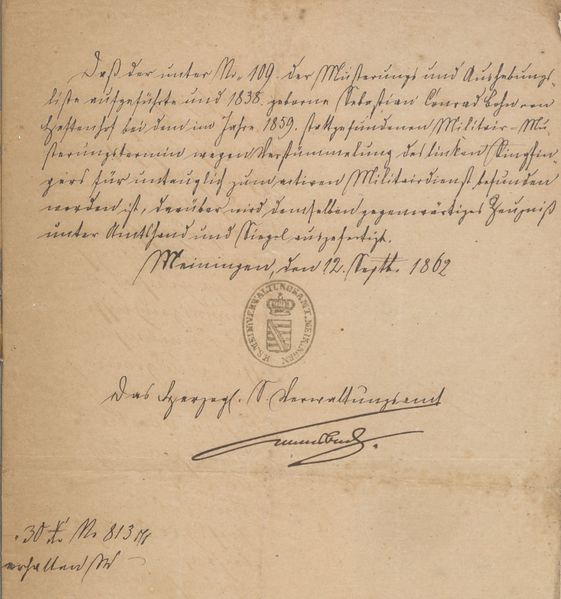 Daß der unter No. 109. der Musterungs und Aushebungs-
liste aufgeführte und 1838. geborne Sebastian Conrad Bohn von
bei dem im Jahre 1859. stattgefundenen Militair-Mu-
sterungstermin wegen Verstümmelung des linken Ringfin-
gers für untauglich zum activen Militairdienst befunden
worden ist, darüber wird demselben gegenwärtiges Zeugniß
unter Amtshand und Siegel ausgefertigt.
Meiningen, den 12. Septb. 1862
H.S.MEIN.VERWALTUNGSAMT.MEININGEN
Das Herzogl. S. Verwaltungsamt
30 No 813
erhalten